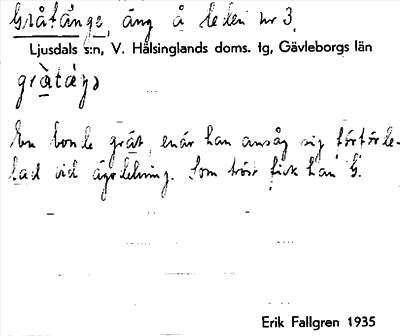 Gråtänge, äng å leden nr 3,
Ljusdals s:n, V. Hälsinglands doms. tg, Gävleborgs län
En bonde grät, enär han ansåg sig förförde-
lad vid ägodelning. Som tröst fick han G.
Erik Fallgren 1935